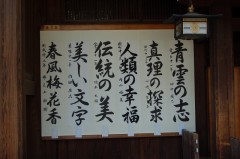 青雲の志
真理の探求
人類の幸福
伝統の美
美しい文字
春風梅花香